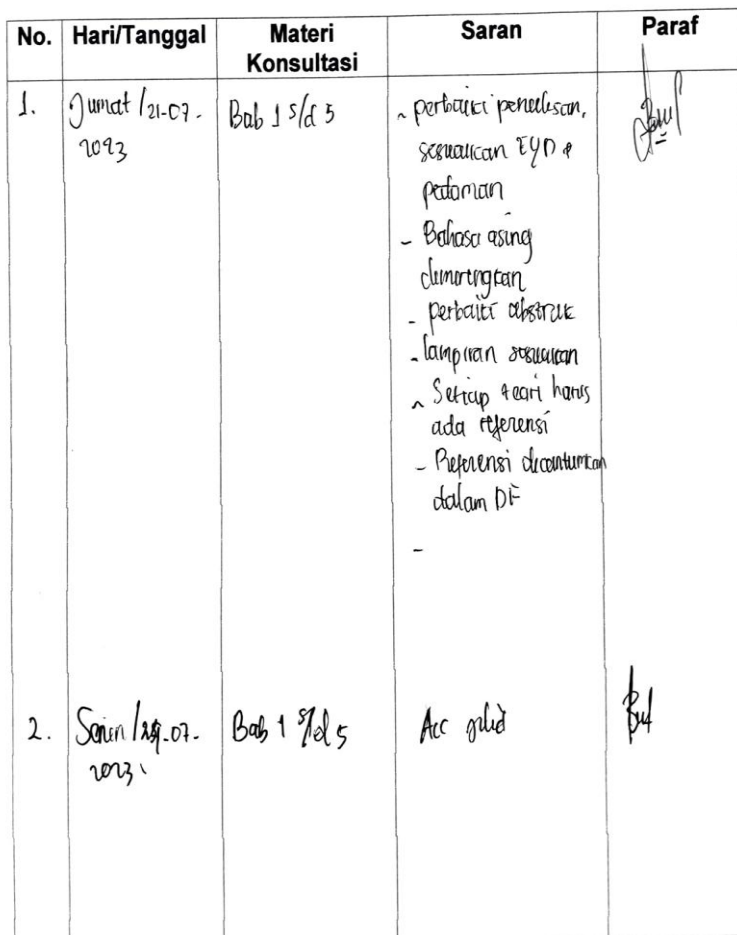 No. Hari/Tanggal Materi Konsultasi Saran Paraf
1. Jumat /21-07-2023 Bab 1 s/d 5
- perbaiki penulisan,
sesuaikan EYD &
pedoman
- Bahasa asing
dimiringkan
- perbaiki abstrak
- lampiran sesuaikan
- Setiap teori harus
ada referensi
- Referensi dicantumkan
dalam DF
-
2. Senin / -07-2023 Bab 1 s/d 5 Acc jilid